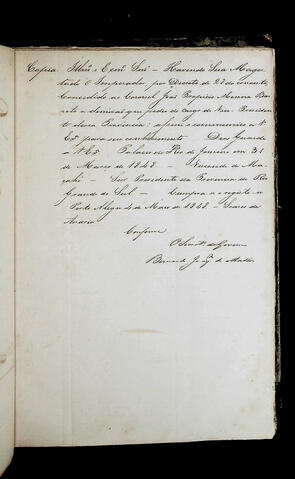 Copia. Illm.º e Exm.º Senr. — Havendo Sua Mages
tade O Imperador, por Decreto de 27 do corrente
Concedido ao Coronel João Propicio Menna Bar
reto a demissão que pedio do cargo de Vice Presiden
te dessa Provincia: assim o communico a V.
Ex.ª para seu conhecimento. Deos Guarde
a V. Ex.ª Palacio do Rio de Janeiro em 31
de Março de 1848. — Visconde de Ma
cahé. — Snr. Presidente da Provincia do Rio
Grande do Sul. — Cumpra-se e registe-se
Porto Alegre 4 de Maio de 1848. — Soares de
Andréa
Conforme
O Secret.º do Governo
Bernardo Joaq.m de Mattos